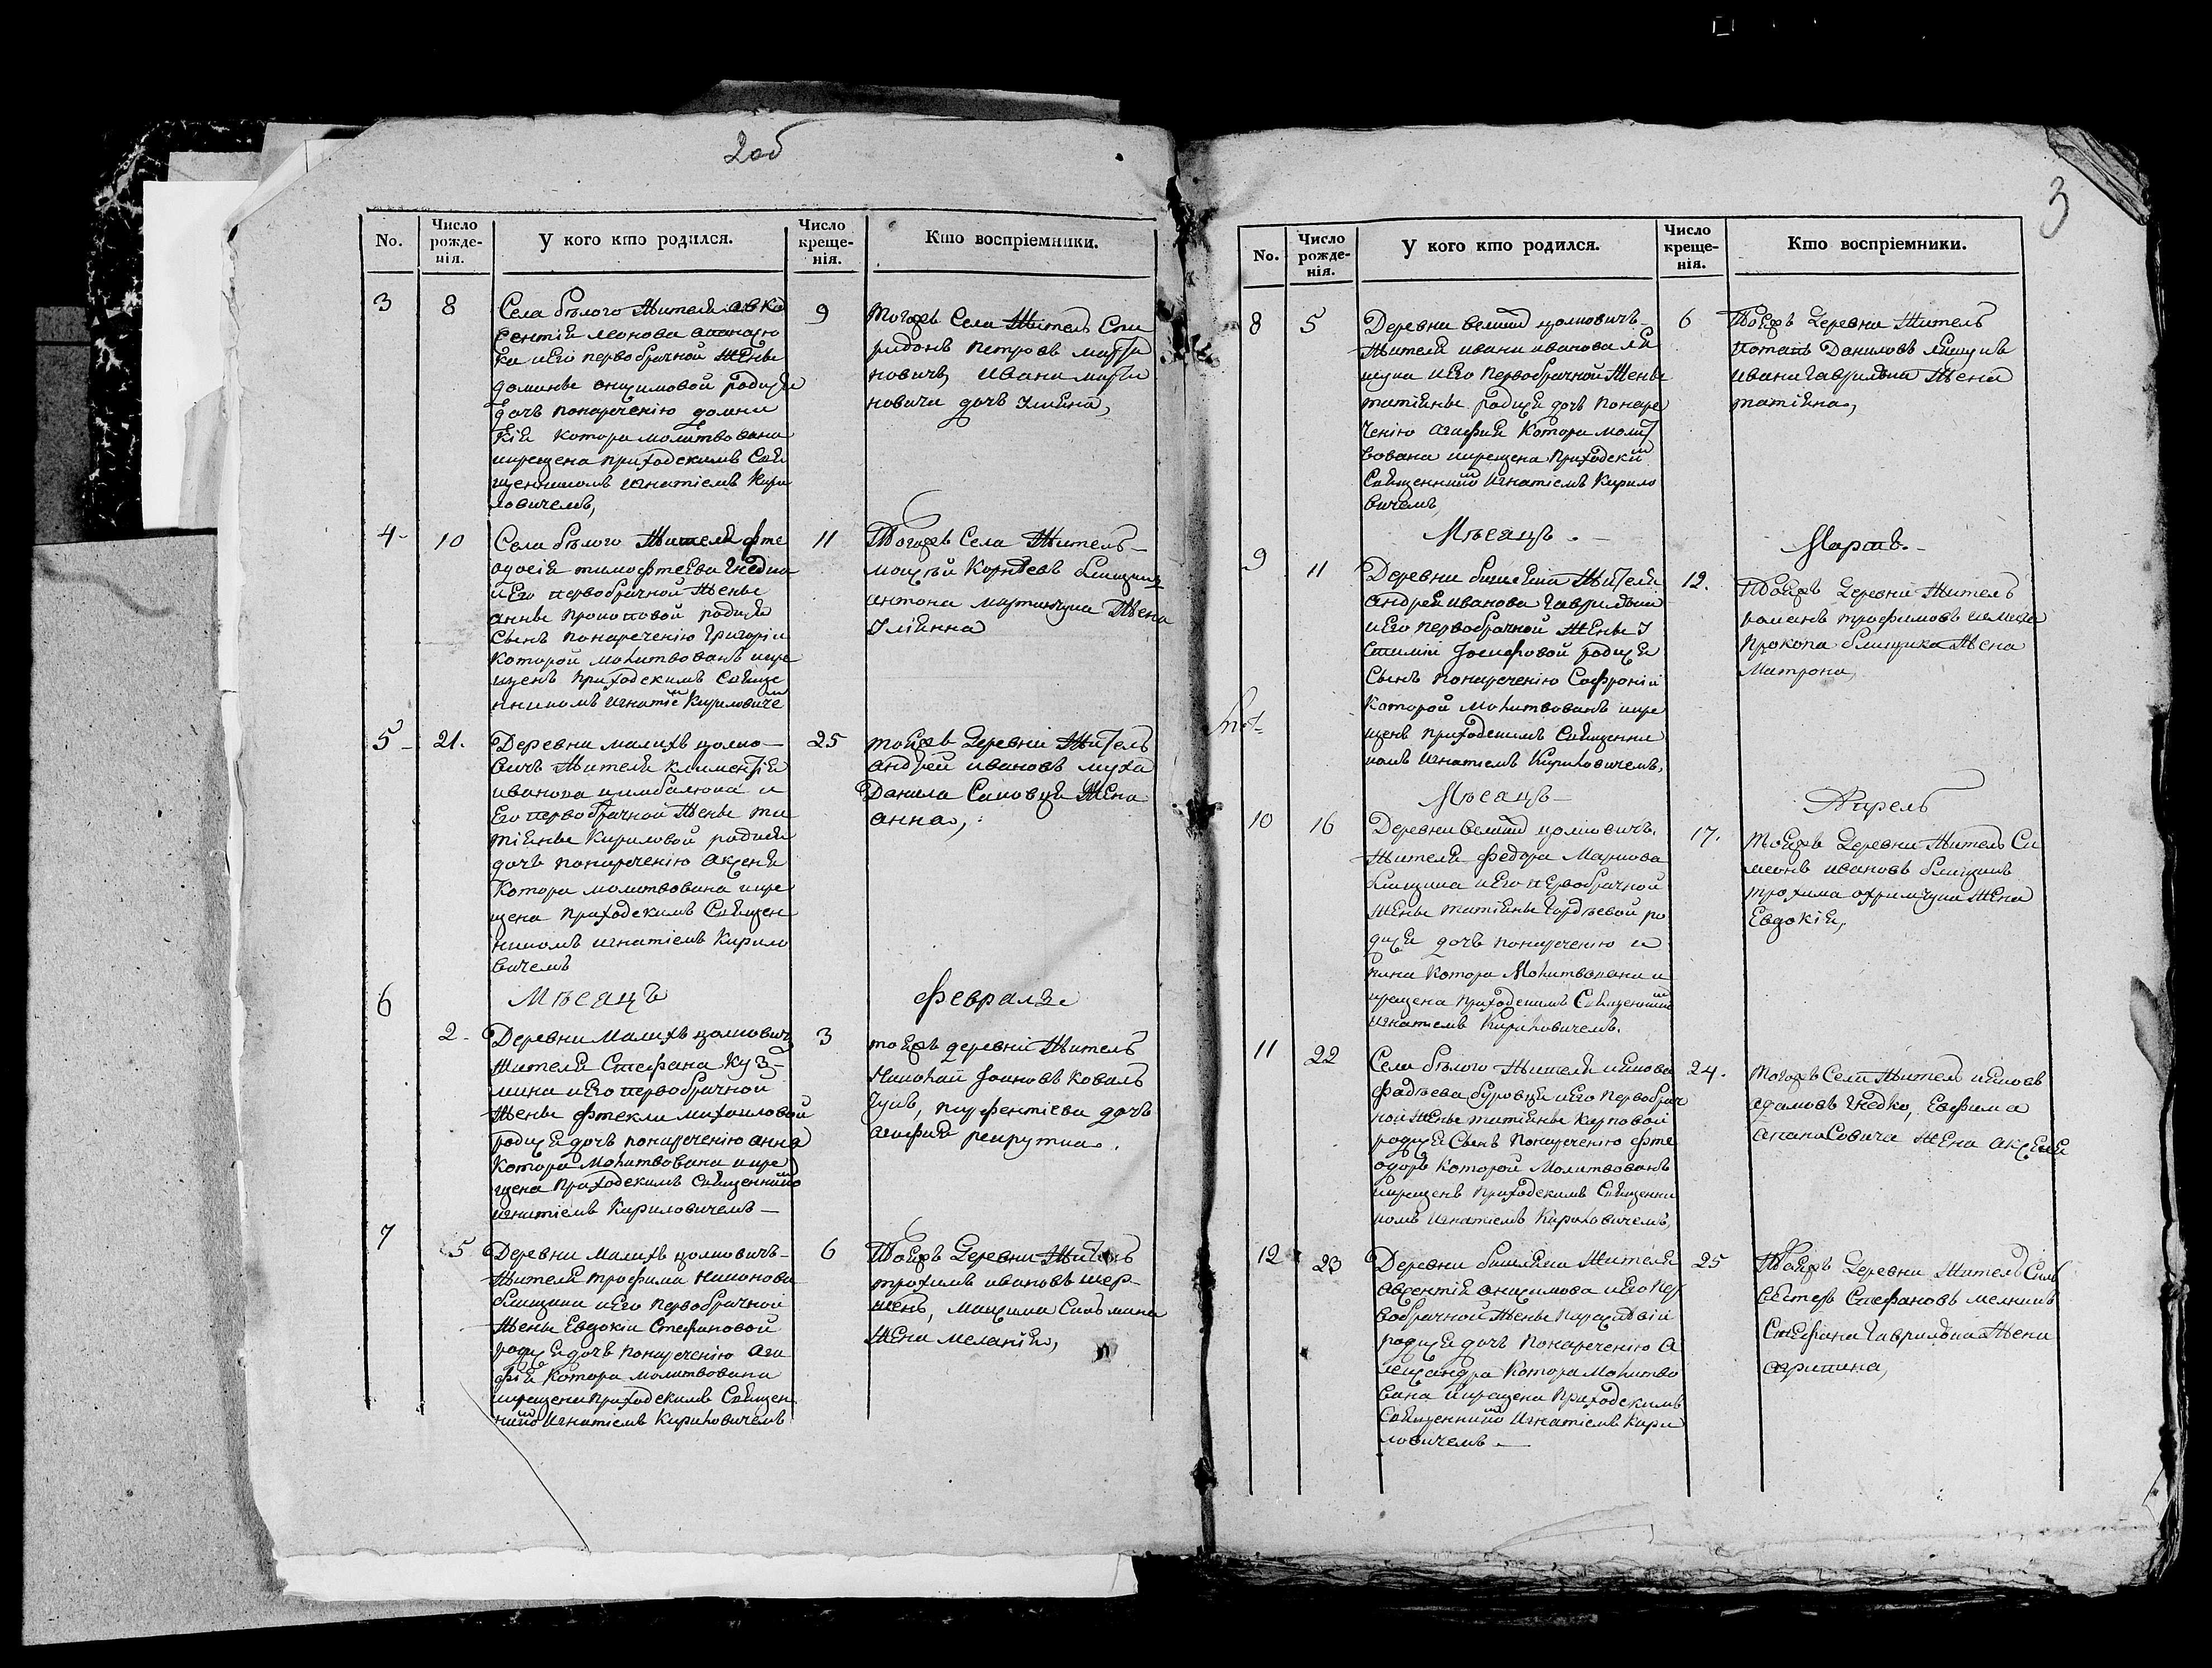 2об
No.
Число рожде-нія.
У кого кто родился.
Число креще-нія.
Кто воспріемники.
3
8
Села бѣлого жителя авкѡ
сентія леонова
ка и его первобрачной жены
домныи онисимовой родися
дочъ по нареченію домни
кія котора молитвована
и крещена приходскимъ Свя
щенникомъ игнатіемъ Кири
ловичемъ,
9
тогожъ Села житель Спи
ридонъ петровъ марти
новичъ, ивана марти
новича дочъ
4
10
Села бѣлого жителя фте
одосія тимофтеева гнедка
и его первобрачной жены
анны прокоповой родися
Сынъ по нареченію григорій
которой молитвованъ и кре
щенъ приходскимъ Священ
никомъ игнатіе Кириловиче
11
Тогожъ Села житель
моисѣй Корнѣевъ блищикъ
антона мартинчука жена
Іліянна
5
21.
Деревни малихъ цолко-
вичъ жителя климентія
иванова цимбалюка и
его первобрачной жены та
тіяны Кириловой родися
дочъ по нареченію аксенія
котора молитвована и кре
щена приходскимъ Священ
никомъ игнатіемъ Кирило
вичемъ
25
тояжъ деревни житель
андрей ивановъ муха
Данила Саковця жена
анна,
6
Мѣсяцъ
Февраля
2
Деревни Малихъ цолковичъ
жителя Стефана Куз-
мина и его первобрачной
жены фтекли михаиловой
родися дочъ по нареченію анна
котора молитвована и кре
щена приходскимъ Священнико
игнатіемъ Кириловичемъ
3
тояжъ деревни житель
Николай Іоановъ коваль
чукъ, парфентіева дочъ
агафія рекрутка.
7
5
Деревни малихъ цолковичъ
жителя трофима никонова
блищика и его первобрачной
жены Евдокіи Стефановой
родися дочъ по нареченію ага
фія котора молитвована
и крещена приходскимъ Священ
нико игнатіемъ Кириловичемъ
6
Тояжъ деревни житель
трохимъ ивановъ шер-
шень, максима
жена меланія,
3
No.
Число рожде-нія.
У кого кто родился.
Число креще-нія.
Кто воспріемники.
8
5
Деревни великъ цолковичъ
жителя ивана иванова
и его первобрачной жены
татіяны родися дочъ по наре
ченію агафія котора молит
вована и крещена приходски
Священнико игнатіемъ Кирило
вичемъ
6
Тояжъ деревни житель
потапъ Даниловъ
ивана гаврилюка жена
татіяна,
Мѣсяцъ
Мартъ.
9
11
Деревни жителя
андрея иванова гаврилюка
и его первобрачной жены Ю
стиміи Іосифовой родися
Сынъ по нареченію Софроній
которой молитвованъ и кре
щенъ приходскимъ Священни
комъ игнатіемъ Кириловичемъ,
12.
Тояжъ деревни житель
романъ трофимовъ
прокопа блищика жена
Матрона,
Мѣсяцъ
Апрель
10
16
Деревни великъ цолковичъ
жителя федора Маркова
блищика и его первобрачной
жены татіяны гордѣевой ро
дися дочъ по нареченію и
рина котора молитвована и
крещена приходскимъ Священнико
игнатіемъ Кириловичемъ.
17.
тояжъ деревни житель Си
меонъ ивановъ блищикъ
трохима охримчука жена
Евдокія,
11
22
Села бѣлого жителя иякова
фадѣева буровця и его первобрач
ной жены татіяны карповой
родися Сынъ по нареченію фте
одоръ которой молитвованъ
и крещенъ приходскимъ Священни
комъ игнатіемъ Кириловичемъ,
24.
Тогожъ Села житель ияковъ
адамовъ гнедко, Евфима
апанасовича жена аксенія
12
23
Деревни жителя
авксентія онисимова и его пер
вобрачной жены параскевіи
родися дочъ по нареченію а
лександра котора молитво
вана и крещена приходскимъ
Священнико игнатіемъ Кири
ловичемъ
25
Тояжъ деревни житель Силь
вестеръ Стефановъ мелникъ
Стефана гаврилюка жена
агрипина,